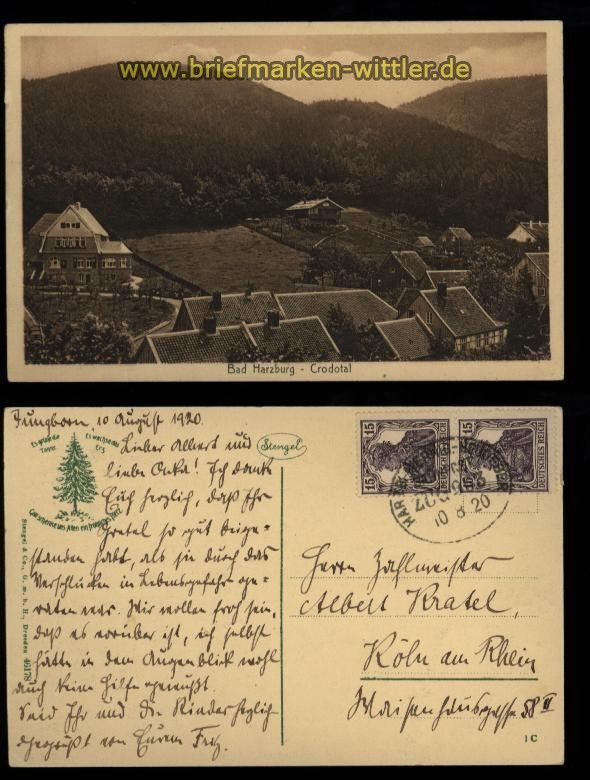 www.briefmarken-wittler.de
Bad Harzburg - Crodotal
Jungborn, 10 August 1920.
Es grüne die Tanne
Es wachse das Erz
Gott schenke uns Allen ein fröhliches Herz
Stengel
Stengel & Co., G. m. b. H., Dresden 46178
Lieber Albert und
liebe Onka! Ich danke
Euch herzlich, daß Ihr
Gretel so gut beige-
standen habt, als sie durch das
Verschlucken in Lebensgefahr ge-
raten war. Wir wollen froh sein,
daß es vorüber ist, ich selbst
hätte in dem Augenblick wohl
auch keine Hilfe gewußt.
Seid Ihr und die Kinder herzlich
gegrüßt von Eurem Fritz.
15 15
DEUTSCHES REICH
15 15
DEUTSCHES REICH
ZUG
10 8 20
Herrn Zahlmeister
Albert Kratel,
Köln am Rhein
Waisenhausgasse 58 II
1C